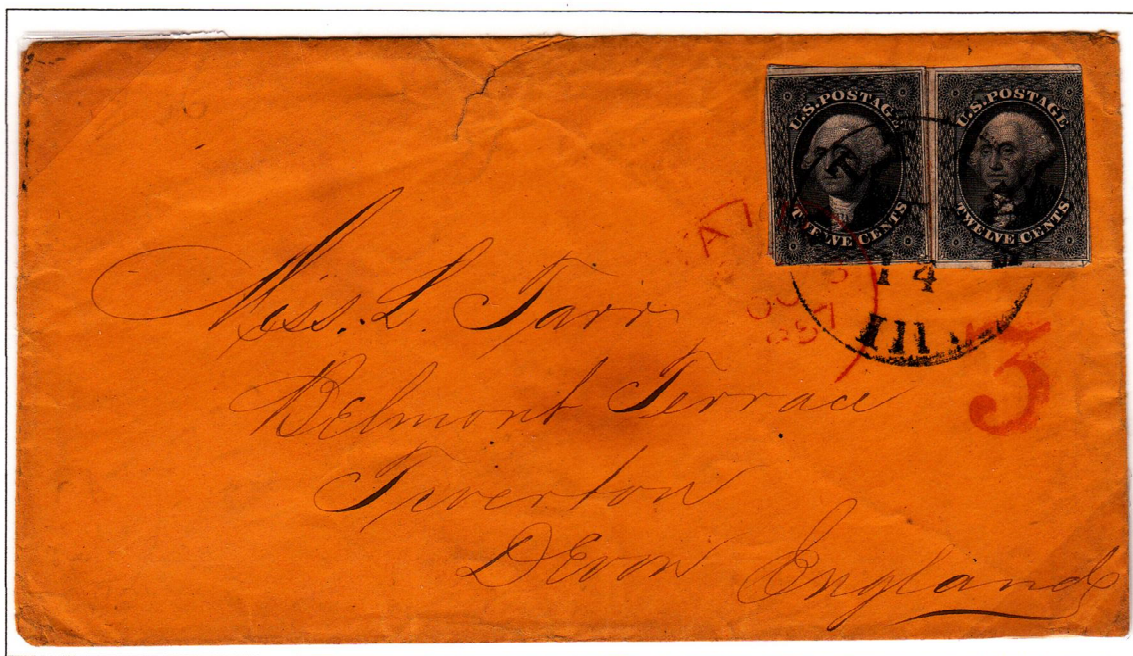 U.S. POSTAGE
TWELVE CENTS
U.S. POSTAGE
TWELVE CENTS
14
Ill
3
Miss. L. Tarr
Belmont Terrace
Tiverton
Devon England